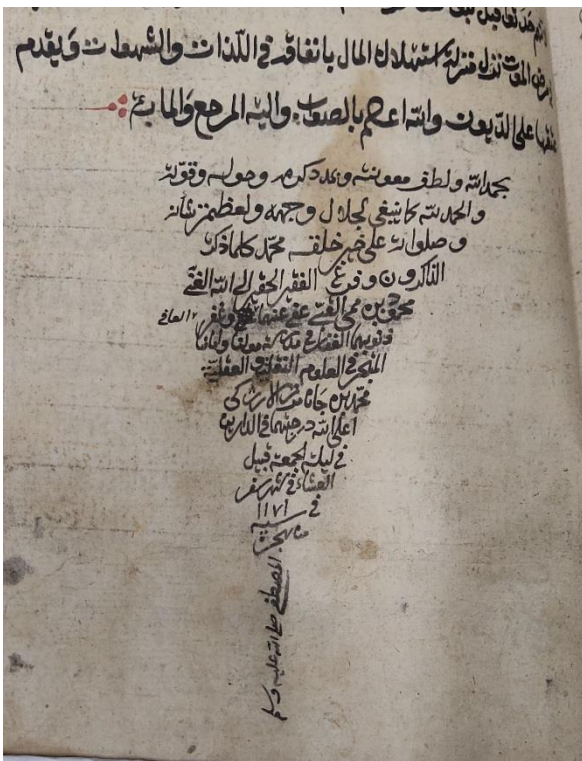 مرض الموت نزل منزلة استهلاك المال بانفاقه في اللذات والشهوات ويقدم
على الديون والله اعلم بالصواب واليه المرجع والمآب
بحمد الله ولطف معونته وحوله وقوته
والحمد لله كما ينبغي لجلال وجهه ولعظمة شأنه
وصلواته على خير خلقه محمد كلما ذكره
الذاكرون وفرغ الفقير الحقير الى الله الغني
محمود بن محي الغني عفى عنهما وغفر
ذنوبهما في مولانا
المتبحر في العلوم النقلية والعقلية
محمد بن
اعلى الله درجتهما في الدارين
في ليلة الجمعة قبيل
العشاء في شهر صفر
في ١١٧١
من هجرة
المصطفى صلى الله عليه وسلم